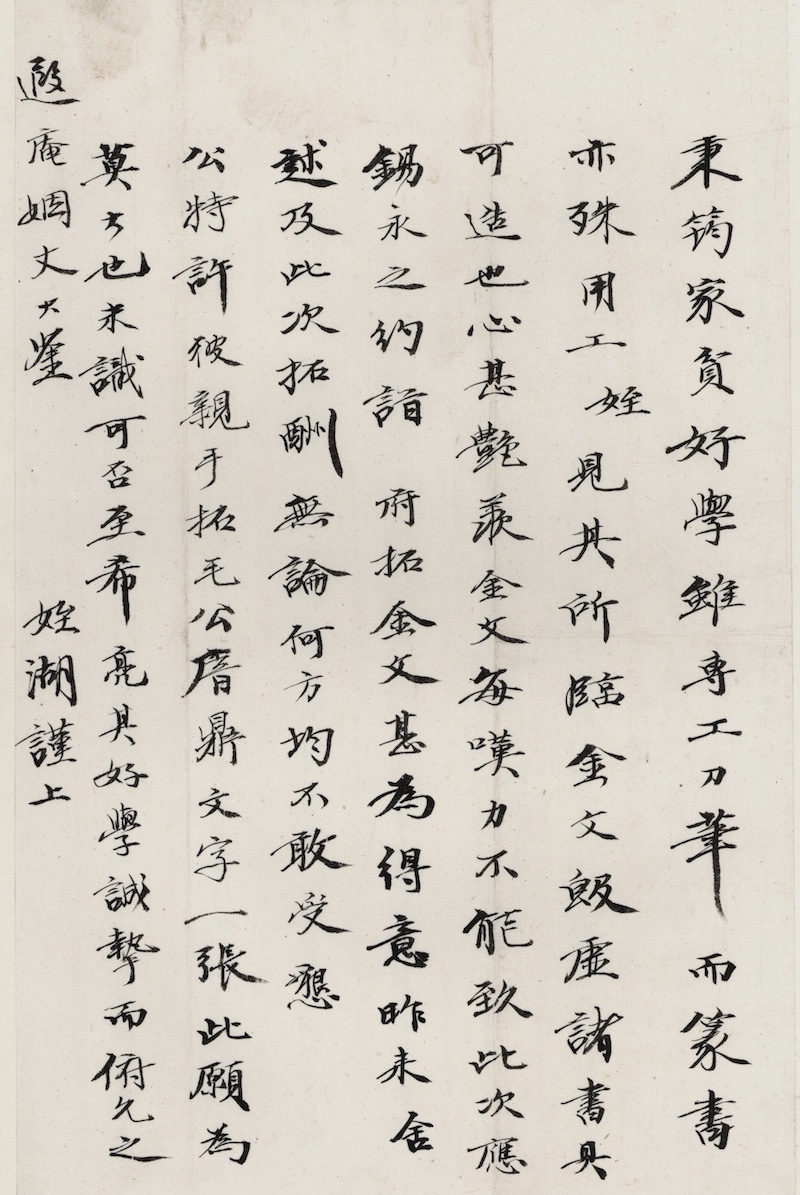 秉筠家貧好學雖專工刀筆而篆書
亦殊用工姪見其所臨金文皈虛諸書具
可造也心甚艷羨金文每嘆力不能致此次應
錫永之約詣府拓金文甚為得意昨來舍
述及此次拓酬無論何方均不敢受懇
公特許彼親手拓毛公厝鼎文字一張此願為
莫大也未識可否至希亮其好學誠摯而俯允之
遐庵姻丈大鑒 姪湖謹上